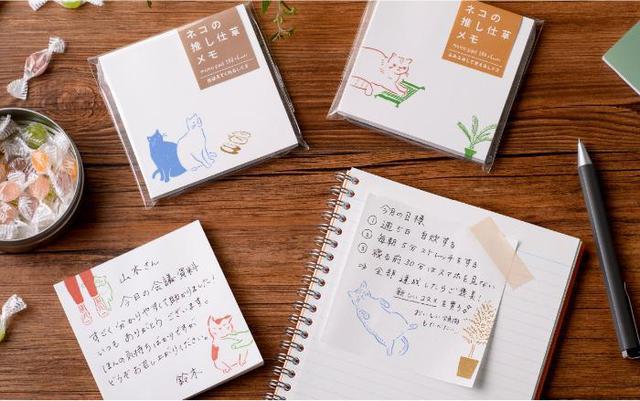 ネコの
推し仕草
メモ
memo pad 150 sheets
ネコの
推し仕草
メモ
memo pad 150 sheets
山本さん
今日の会議資料
すごく分かりやすくて助かりました!
いつもありがとうございます。
ほんの気持ちばかりですが
どうぞお召し上がりください。
鈴木
今月の目標
① 週5日 自炊する
② 毎朝5分ストレッチをする
③ 寝る前30分はスマホを見ない
⇒ 全部達成したらご褒美!
新しいコスメを買う
おいしい焼肉